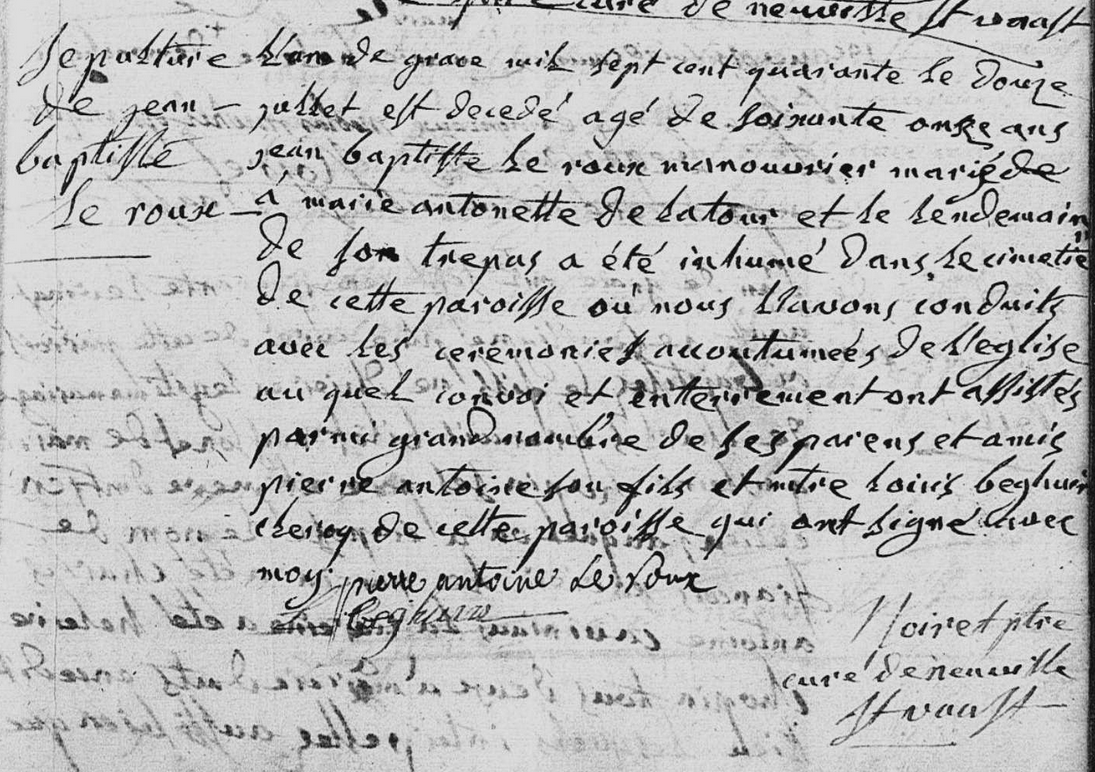 curé de neuville St vaast
Sepulture
de jean
baptiste
le roux
L'an de grace mil sept cent quarante le douze
jullet est decedé agé de soixante onze ans
jean baptiste le roux manouvrier marié de
á marie antonette de latour et le lendemain
de son trepas a été inhumé dans le cimetie
de cette paroisse ou nous l'avons conduits
avec les ceremonies accoutumées de l'eglise
au quel convoi et enterrement ont assistés
parmi grand nombre de ses parens et amis
pierre antoine son fils et mtre louis beghuin
clercq de cette paroisse qui ont signé avec
moy
pierre antoine Le Roux
L Beghuin
Noiret ptre
curé de neuville
St vaast